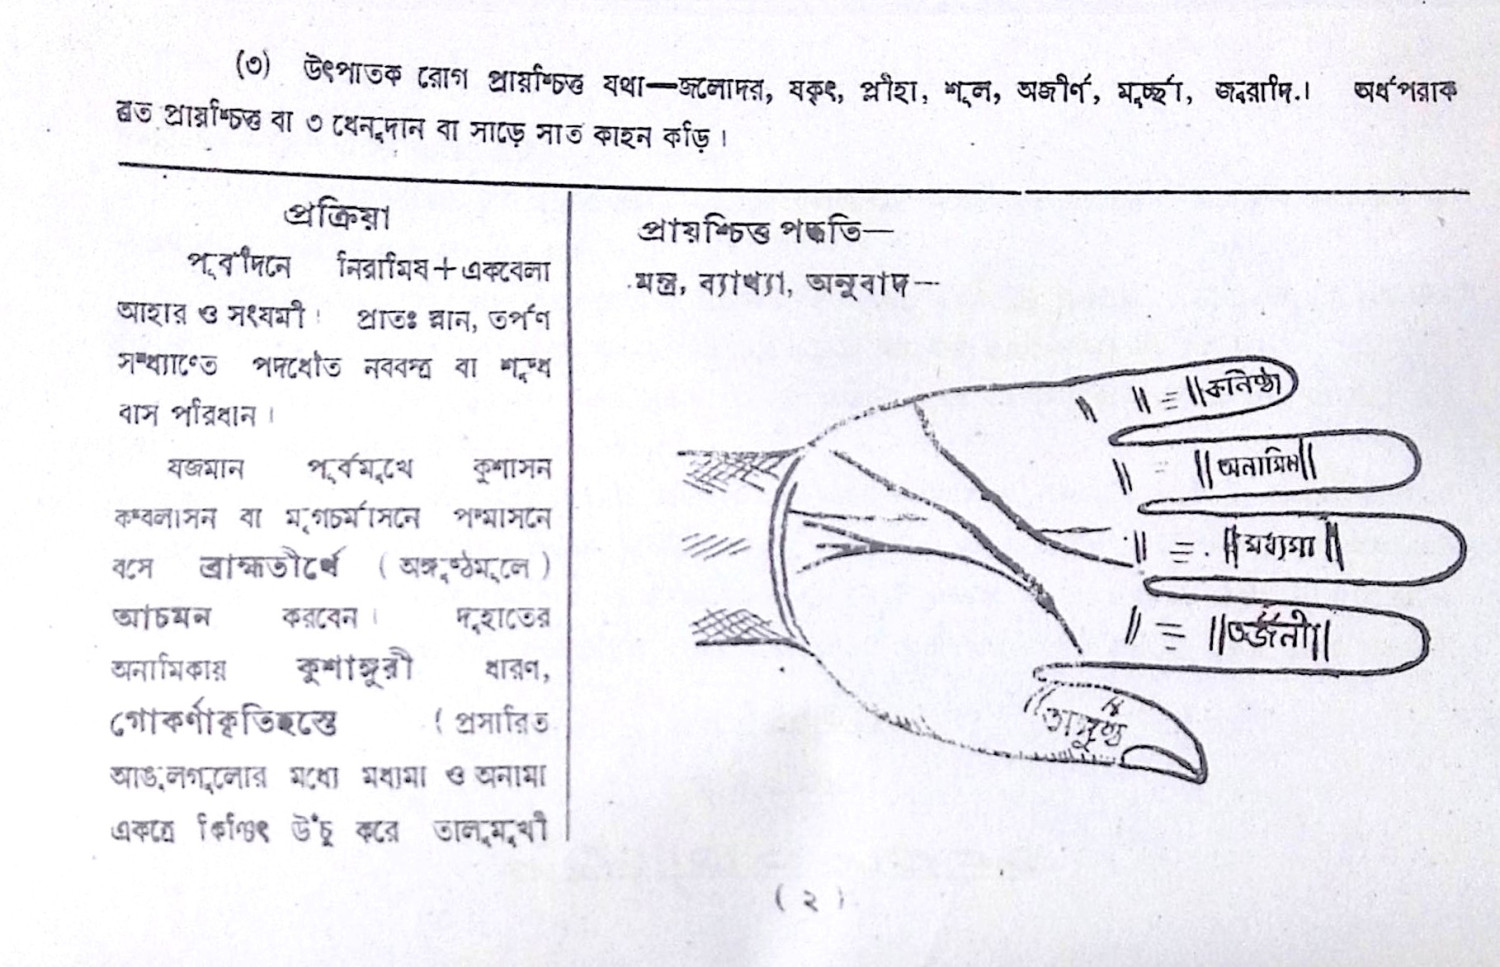 (৩) উৎপাতক রোগ প্রায়শ্চিত্ত যথা—জলোদর, যকৃৎ, প্লীহা, শূল, অজীর্ণ, মূর্চ্ছা, জ্বরাদি.। অর্ধপরাক
ব্রত প্রায়শ্চিত্ত বা ৩ ধেনুদান বা সাড়ে সাত কাহন কড়ি।
প্রক্রিয়া
পূর্বদিনে নিরামিষ+একবেলা
আহার ও সংযমী। প্রাতঃ স্নান, তর্পণ
সন্ধ্যান্তে পদধৌত নববস্ত্র বা শুদ্ধ
বাস পরিধান।
যজমান পূর্বমুখে কুশাসন
কম্বলাসন বা মৃগচর্মাসনে পদ্মাসনে
বসে ব্রাহ্মতীর্থে (অঙ্গুষ্ঠমূলে)
আচমন করবেন। দুহাতের
অনামিকায় কুশাঙ্গুরী ধারণ,
গোকর্ণাকৃতিহস্তে (প্রসারিত
আঙুলগুলোর মধ্যে মধ্যমা ও অনামা
একত্রে কিঞ্চিৎ উঁচু করে তালুমুখী
প্রায়শ্চিত্ত পদ্ধতি—
মন্ত্র, ব্যাখ্যা, অনুবাদ—
কনিষ্ঠা
অনামিকা
মধ্যমা
তর্জনী
অঙ্গুষ্ঠ
(২)